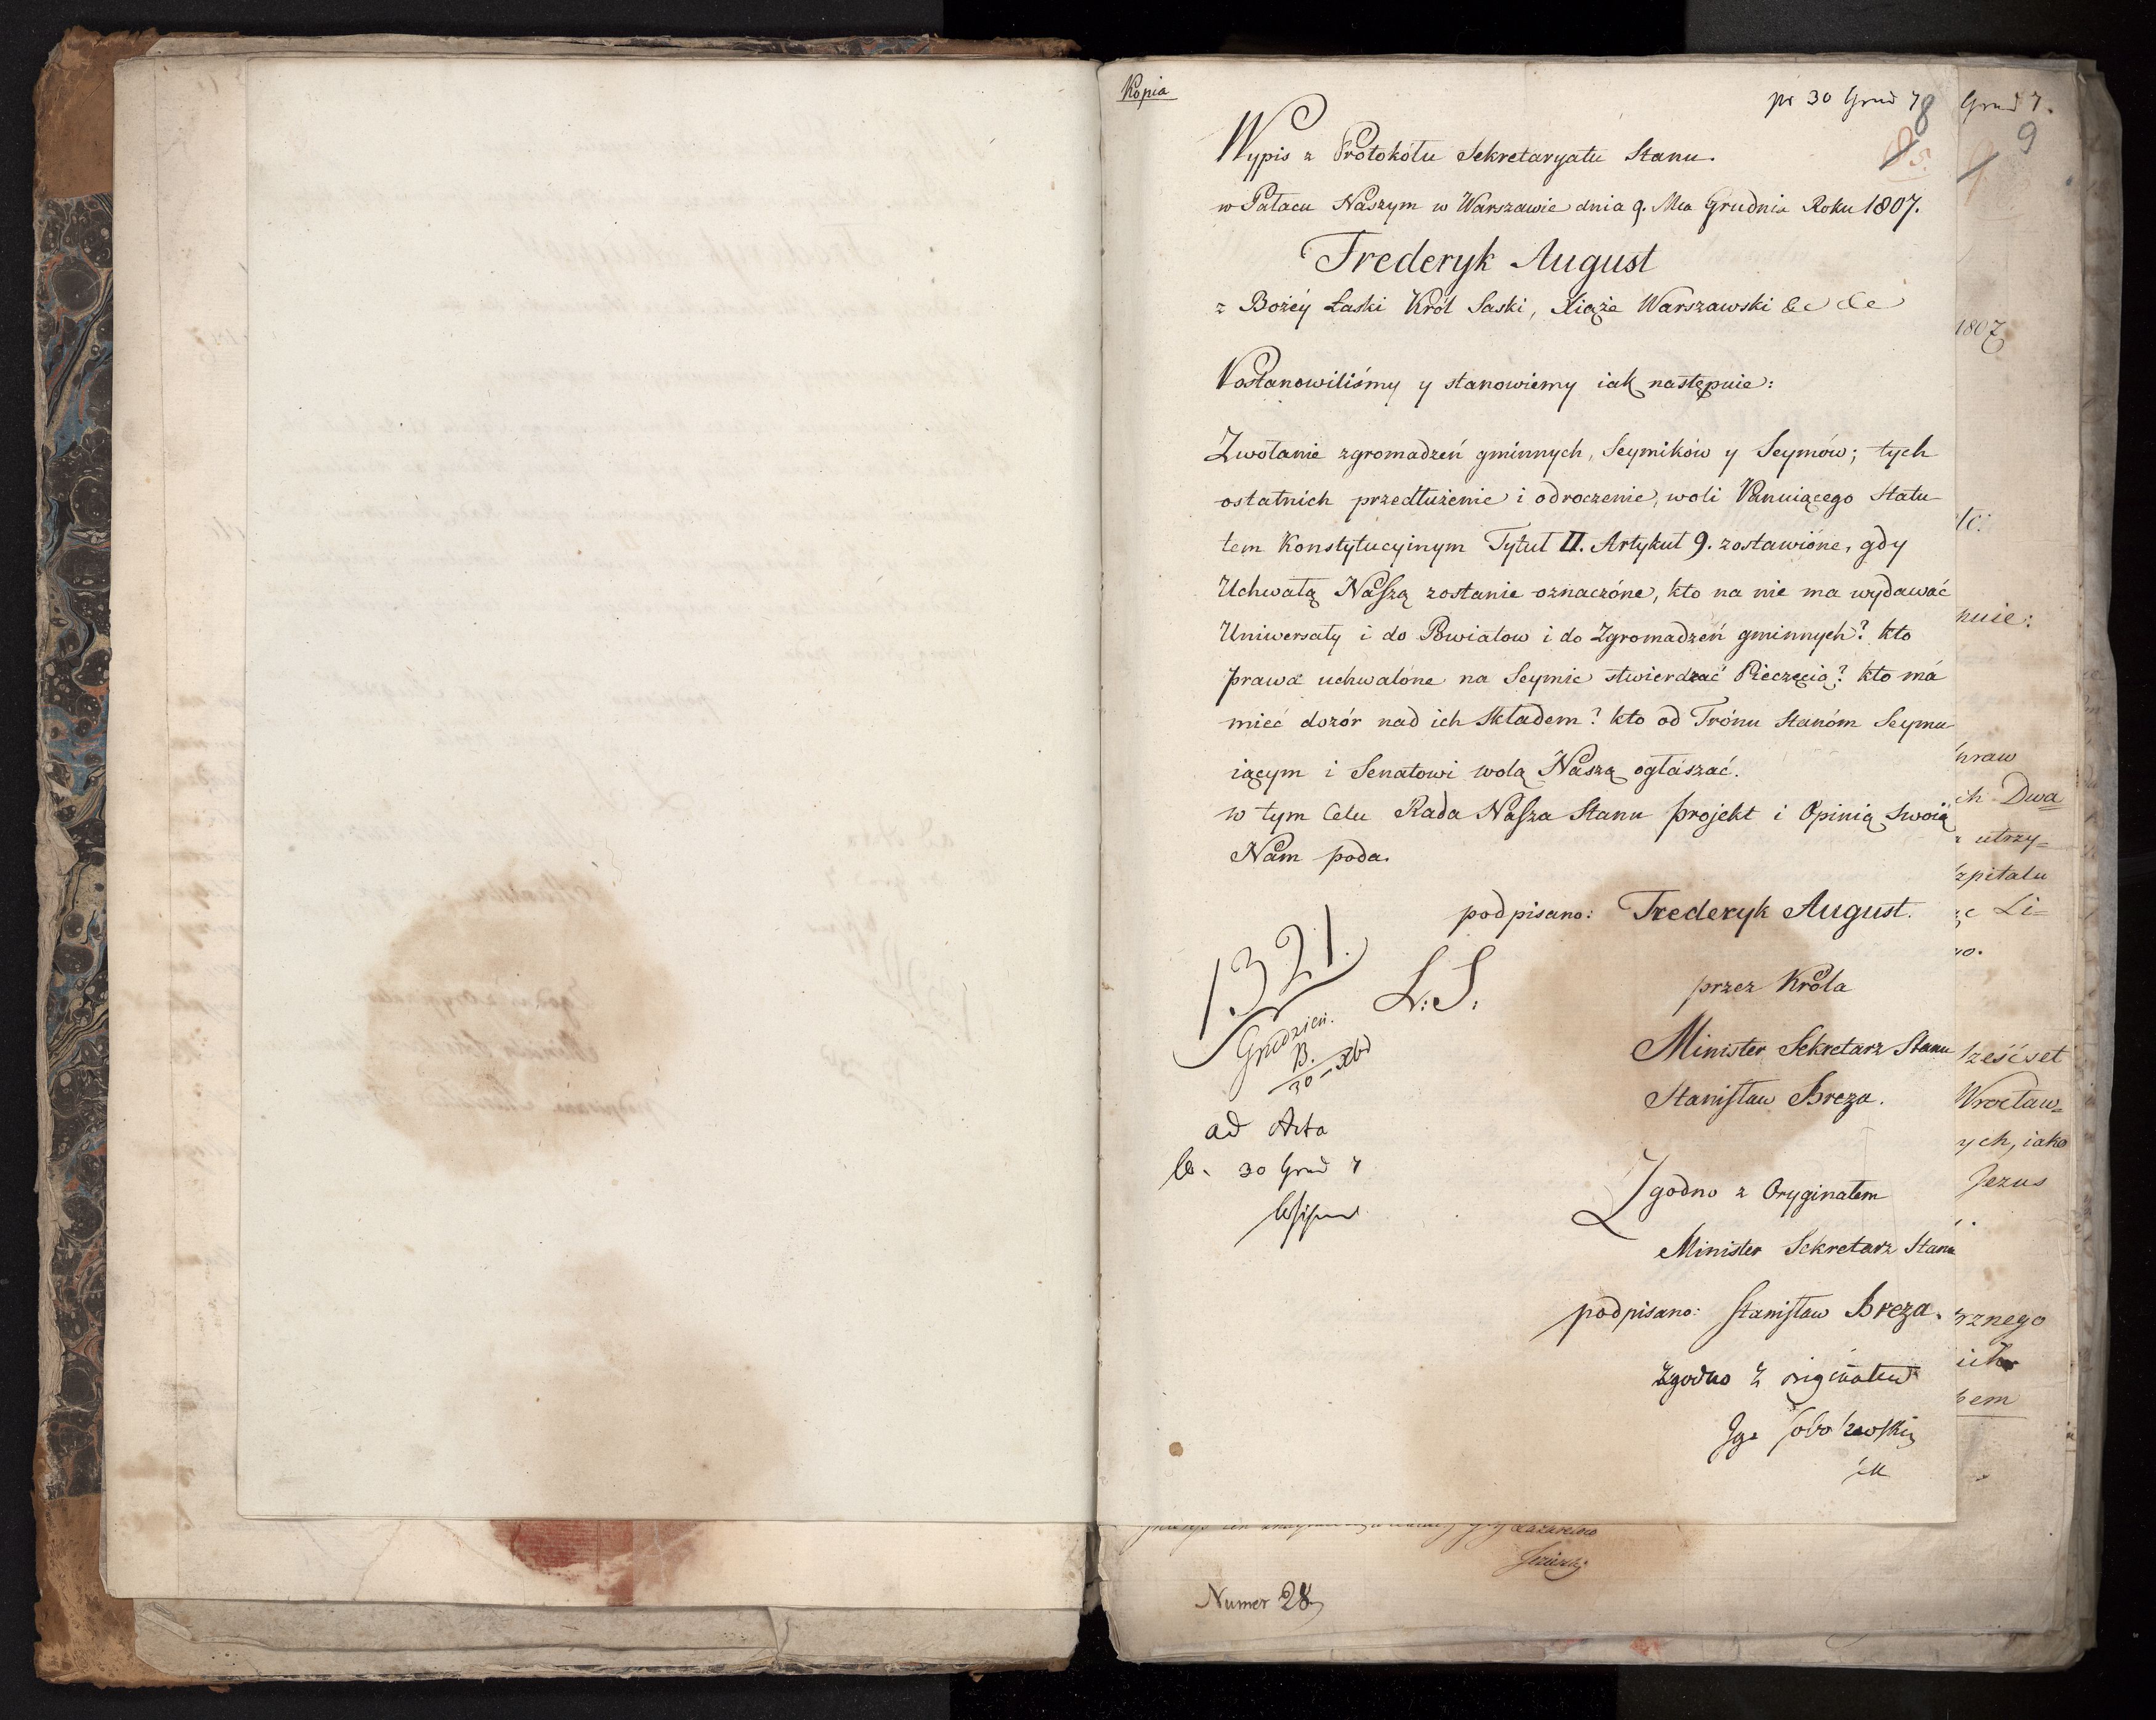 Kopia
pr 30 Grud 7
8
Wypis z Protokółu Sekretaryatu Stanu.
w Pałacu Naszym w Warszawie dnia 9. Mca Grudnia Roku 1807.
Frederyk August
z Bożéy Łaski Król Saski, Xiąże Warszawski &c &c
Postanowiliśmy y stanowiemy iak następuie:
Zwołanie zgromadzeń gminnych, Seymików y Seymów; tych
ostatnich przedłużenie i odroczenie, woli Panuiącego Statu
tem Konstytucyinym Tytuł II. Artykuł 9. zostawióne, gdy
Uchwałą Naszą zostanie oznaczóne, kto na nie ma wydawać
Uniwersały i do Powiatow i do Zgromadzeń gminnych? kto
prawa uchwalóne na Seymie stwierdzać Pieczęcią? kto má
mieć dozór nad ich składem? kto od Trónu Stanóm Seymu
iącym i Senatowi wolą Naszą ogłászać.
w tym Celu Rada Nasza Stanu projekt i Opinią swoią
Nam poda.
podpisano: Frederyk August.
1321.
L: S:
Grudzień.
B.
30 Xbr
przez Króla
Minister Sekretarz Stanu
Stanisław Breza.
ad Acta
30 Grud 7
Zgodno z Oryginałem
Minister Sekretarz Stanu
podpisano: Stanisław Breza.
Zgodno z originałem
Grud 7.
9
1807
nuie:
praw
ich Dwa
utrzy=
szpitalu
Li=
sześćset
Wrocław=
ych, iako
Jezus
rznego
ich
Numer 28